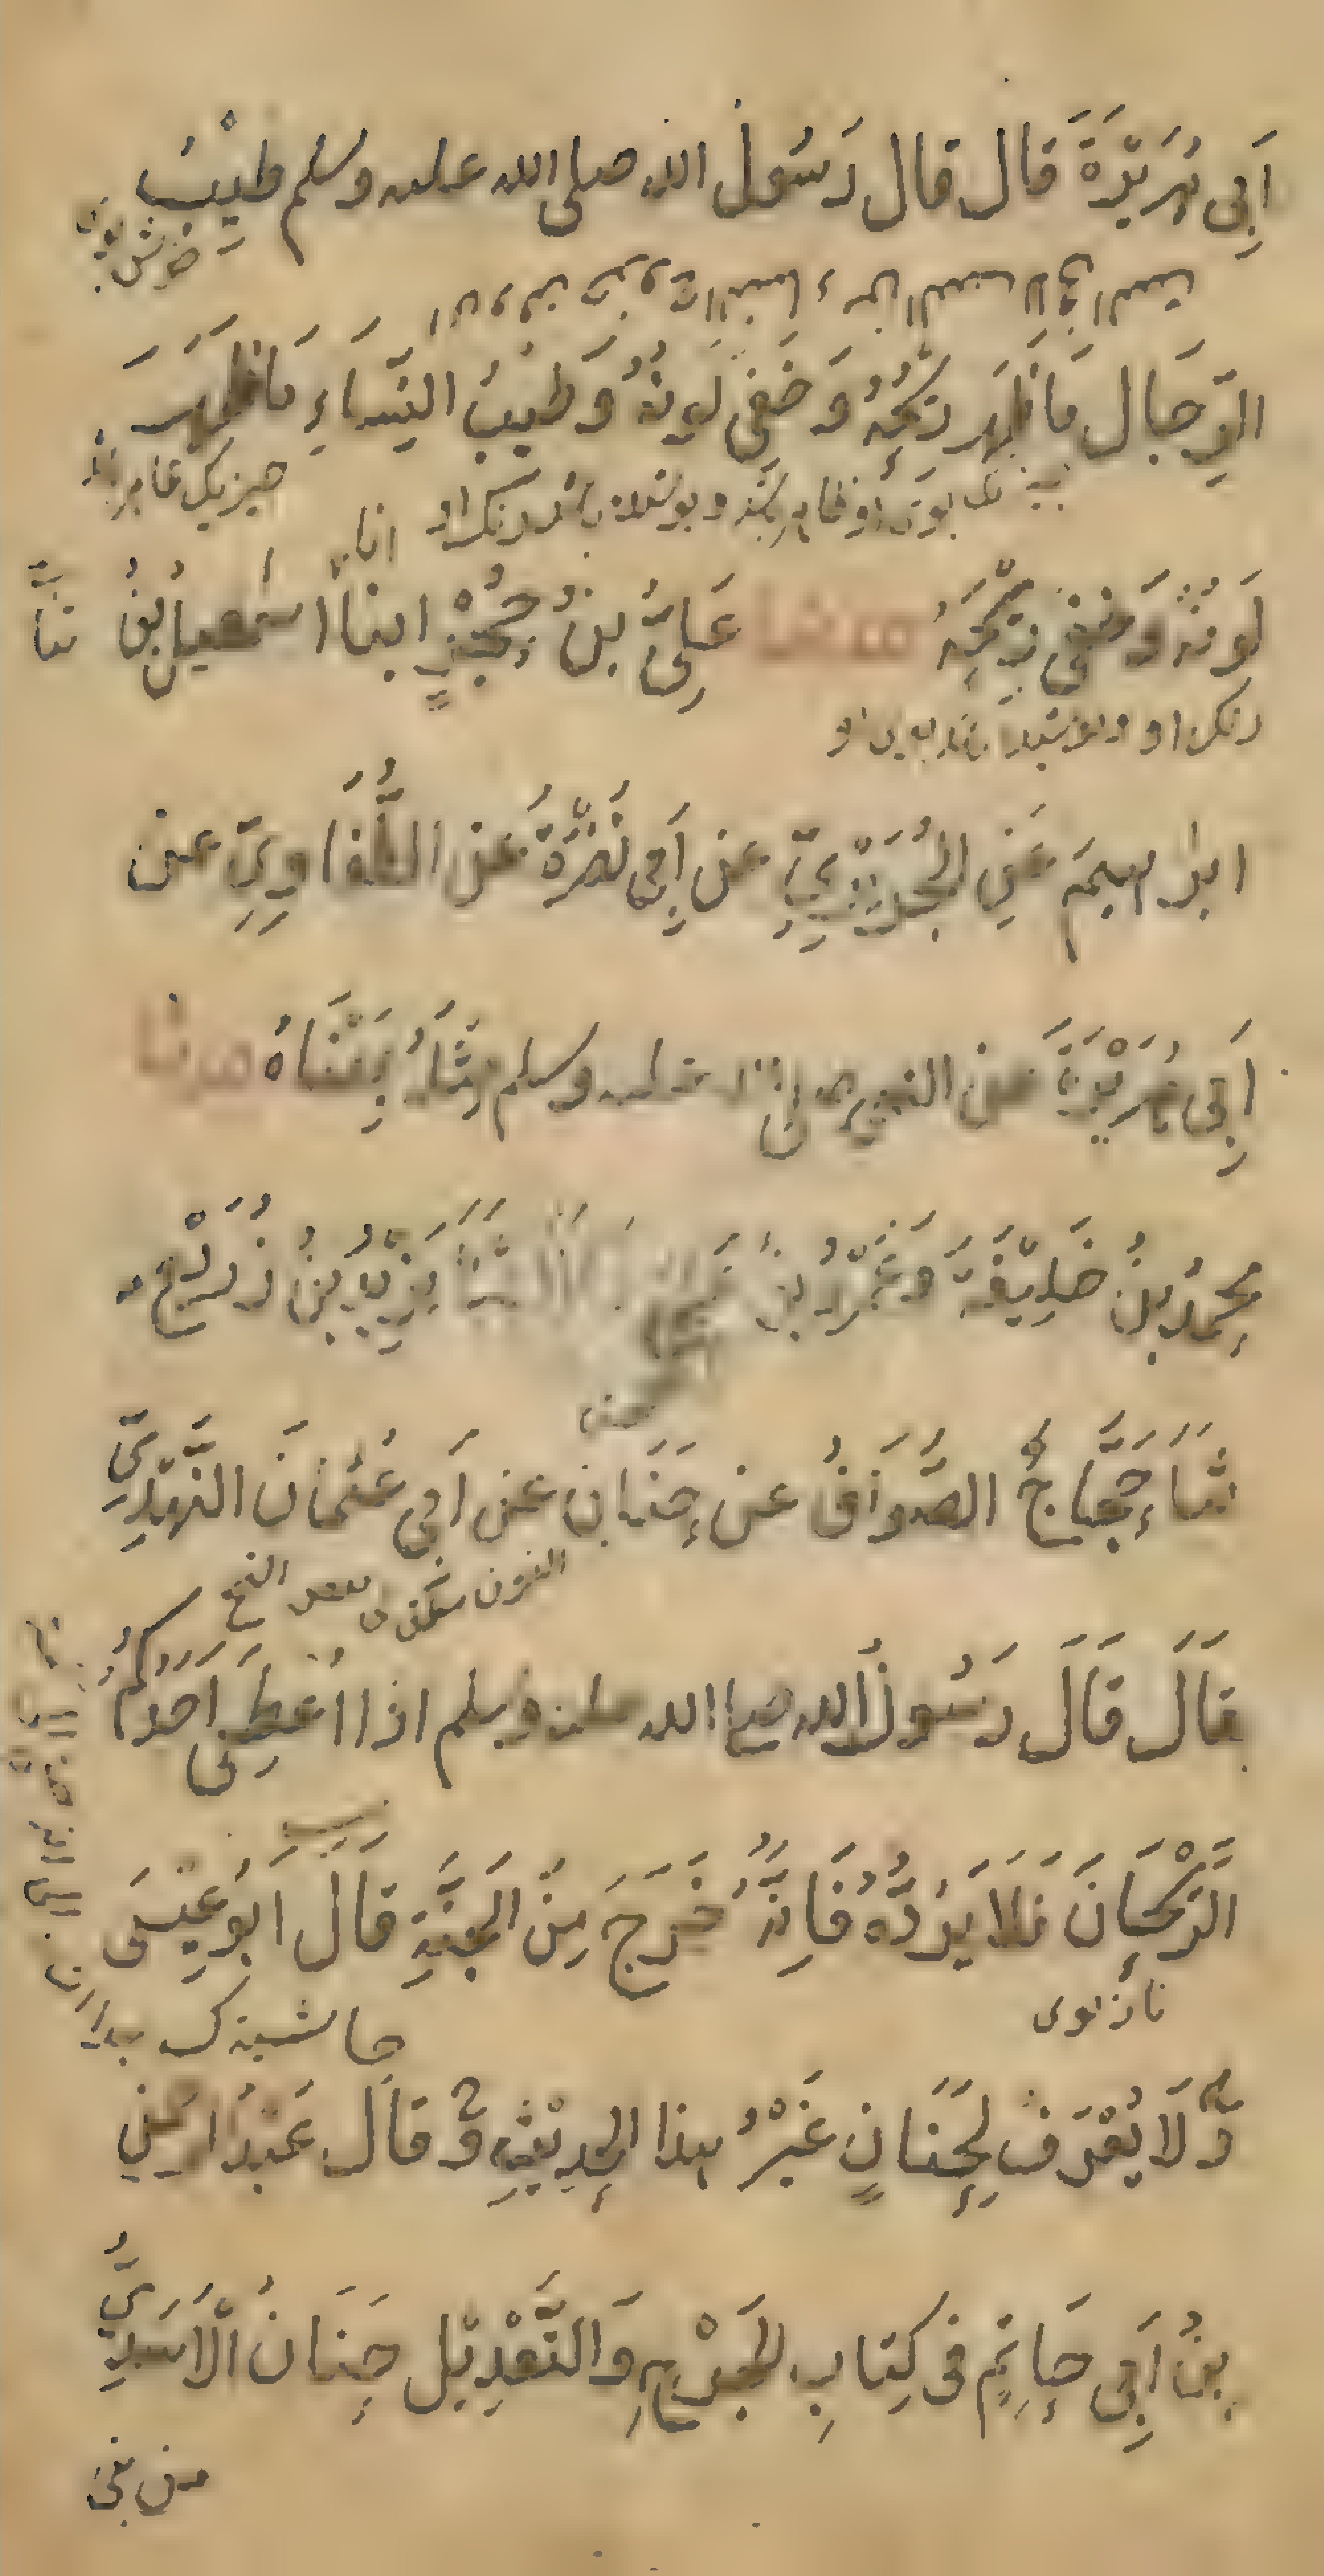 اَبِى هُرَيْرَةَ قَالَ قَالَ رَسُولُ الله صلى الله عليه وسلم طِيْبُ
خوش بوى
الرِّجَالِ مَا ظَهَرَ رِيْحُهُ وَخَفِىَ لَوْنُهُ وَطِيْبُ النِّسَاءِ مَا ظَهَرَ
بوى او ظاهر باشد و پوشیده باشد رنک او
انا
لَوْنُهُ وَخَفِىَ رِيْحُهُ حدثنا عَلِىُّ بنُ حُجْرٍ ابنا اسمعيلُ بْنُ
رنک او و پوشیده باشد بوى او
ابراهيمَ عَنِ الْجُرَيْرِيِّ عن اَبِى نَضْرَةَ عَنِ الطُّفَاوِيِّ عن
اَبِى هُرَيْرَةَ عن النبي صلى الله عليه وسلم مِثْلَهُ بِمَعْنَاهُ حدثنا
محمدُ بنُ خَلِيْفَةَ وَعَمْرُو بْنُ عَلِىٍّ قَالَا ثَنَا يَزِيْدُ بْنُ زُرَيْعٍ
ثَنَا حَجَّاجٌ الصَّوَافُ عن حَنَانٍ عن اَبِى عُثْمَانَ النَّهْدِيِّ
قَالَ قَالَ رَسُولُ الله صلى الله عليه وسلم اذا اُعْطِىَ اَحَدُكُمُ
الرَّيْحَانَ فَلَا يَرُدَّهُ فَاِنَّهُ خَرَجَ مِنَ الْجَنَّةِ قَالَ اَبُو عِيْسَى
نازبوى
وَلَا يُعْرَفُ لِحَنَانٍ غَيْرُ هذا الحدِيْثِ وَقَالَ عَبْدُ الرحمنِ
بْنُ اَبِى حَاتِمٍ فى كِتَابِ الْجَرْحِ وَالتَّعْدِيْلِ حَنَانُ الْاَسَدِيُّ
من بنى